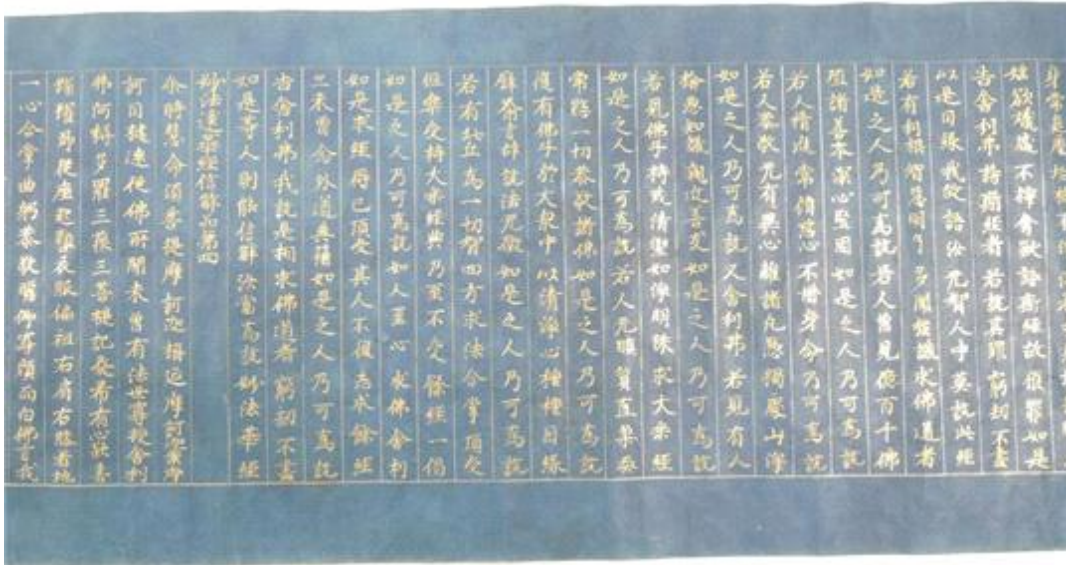 婬欲熾盛 不擇禽獸 謗斯經故 獲罪如是
告舍利弗 謗斯經者 若說其罪 窮劫不盡
以是因緣 我故語汝 无智人中 莫說此經
若有利根 智慧明了 多聞強識 求佛道者
如是之人 乃可為說 若人曾見 億百千佛
殖諸善本 深心堅固 如是之人 乃可為說
若人精進 常修慈心 不惜身命 乃可為說
若人恭敬 无有異心 離諸凡愚 獨處山澤
如是之人 乃可為說 又舍利弗 若見有人
捨惡知識 親近善友 如是之人 乃可為說
若見佛子 持戒清潔 如淨明珠 求大乘經
如是之人 乃可為說 若人无瞋 質直柔軟
常愍一切 恭敬諸佛 如是之人 乃可為說
復有佛子 於大眾中 以清淨心 種種因緣
譬喻言辭 說法无礙 如是之人 乃可為說
若有比丘 為一切智 四方求法 合掌頂受
但樂受持 大乘經典 乃至不受 餘經一偈
如是之人 乃可為說 如人至心 求佛舍利
如是求經 得已頂受 其人不復 志求餘經
亦未曾念 外道典籍 如是之人 乃可為說
告舍利弗 我說是相 求佛道者 窮劫不盡
如是等人 則能信解 汝當為說 妙法華經
妙法蓮華經信解品第四
尒時慧命須菩提摩訶迦旃延摩訶迦葉摩
訶目揵連從佛所聞未曾有法世尊授舍利
弗阿耨多羅三藐三菩提記發希有心歡喜
踊躍即從座起整衣服偏袒右肩右膝著地
一心合掌曲躬恭敬瞻仰尊顏而白佛言我